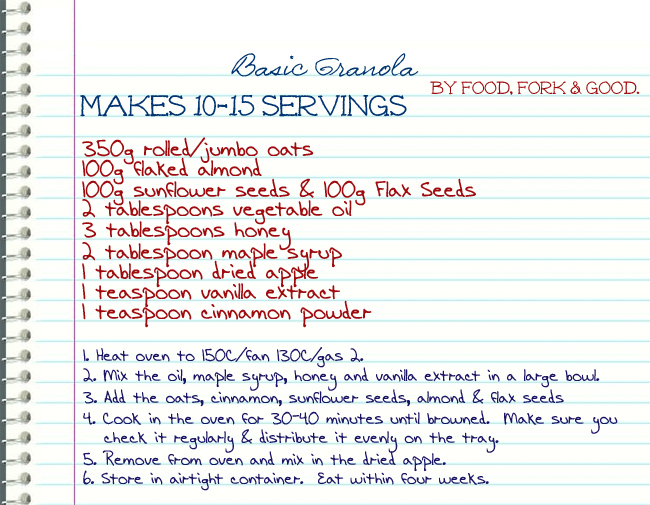 Basic Granola
BY FOOD, FORK & GOOD.
MAKES 10-15 SERVINGS
350g rolled/jumbo oats
100g flaked almond
100g sunflower seeds & 100g Flax Seeds
2 tablespoons vegetable oil
3 tablespoons honey
2 tablespoon maple syrup
1 tablespoon dried apple
1 teaspoon vanilla extract
1 teaspoon cinnamon powder
1. Heat oven to 150C/fan 130C/gas 2.
2. Mix the oil, maple syrup, honey and vanilla extract in a large bowl.
3. Add the oats, cinnamon, sunflower seeds, almond & flax seeds
4. Cook in the oven for 30-40 minutes until browned. Make sure you
check it regularly & distribute it evenly on the tray.
5. Remove from oven and mix in the dried apple.
6. Store in airtight container. Eat within four weeks.